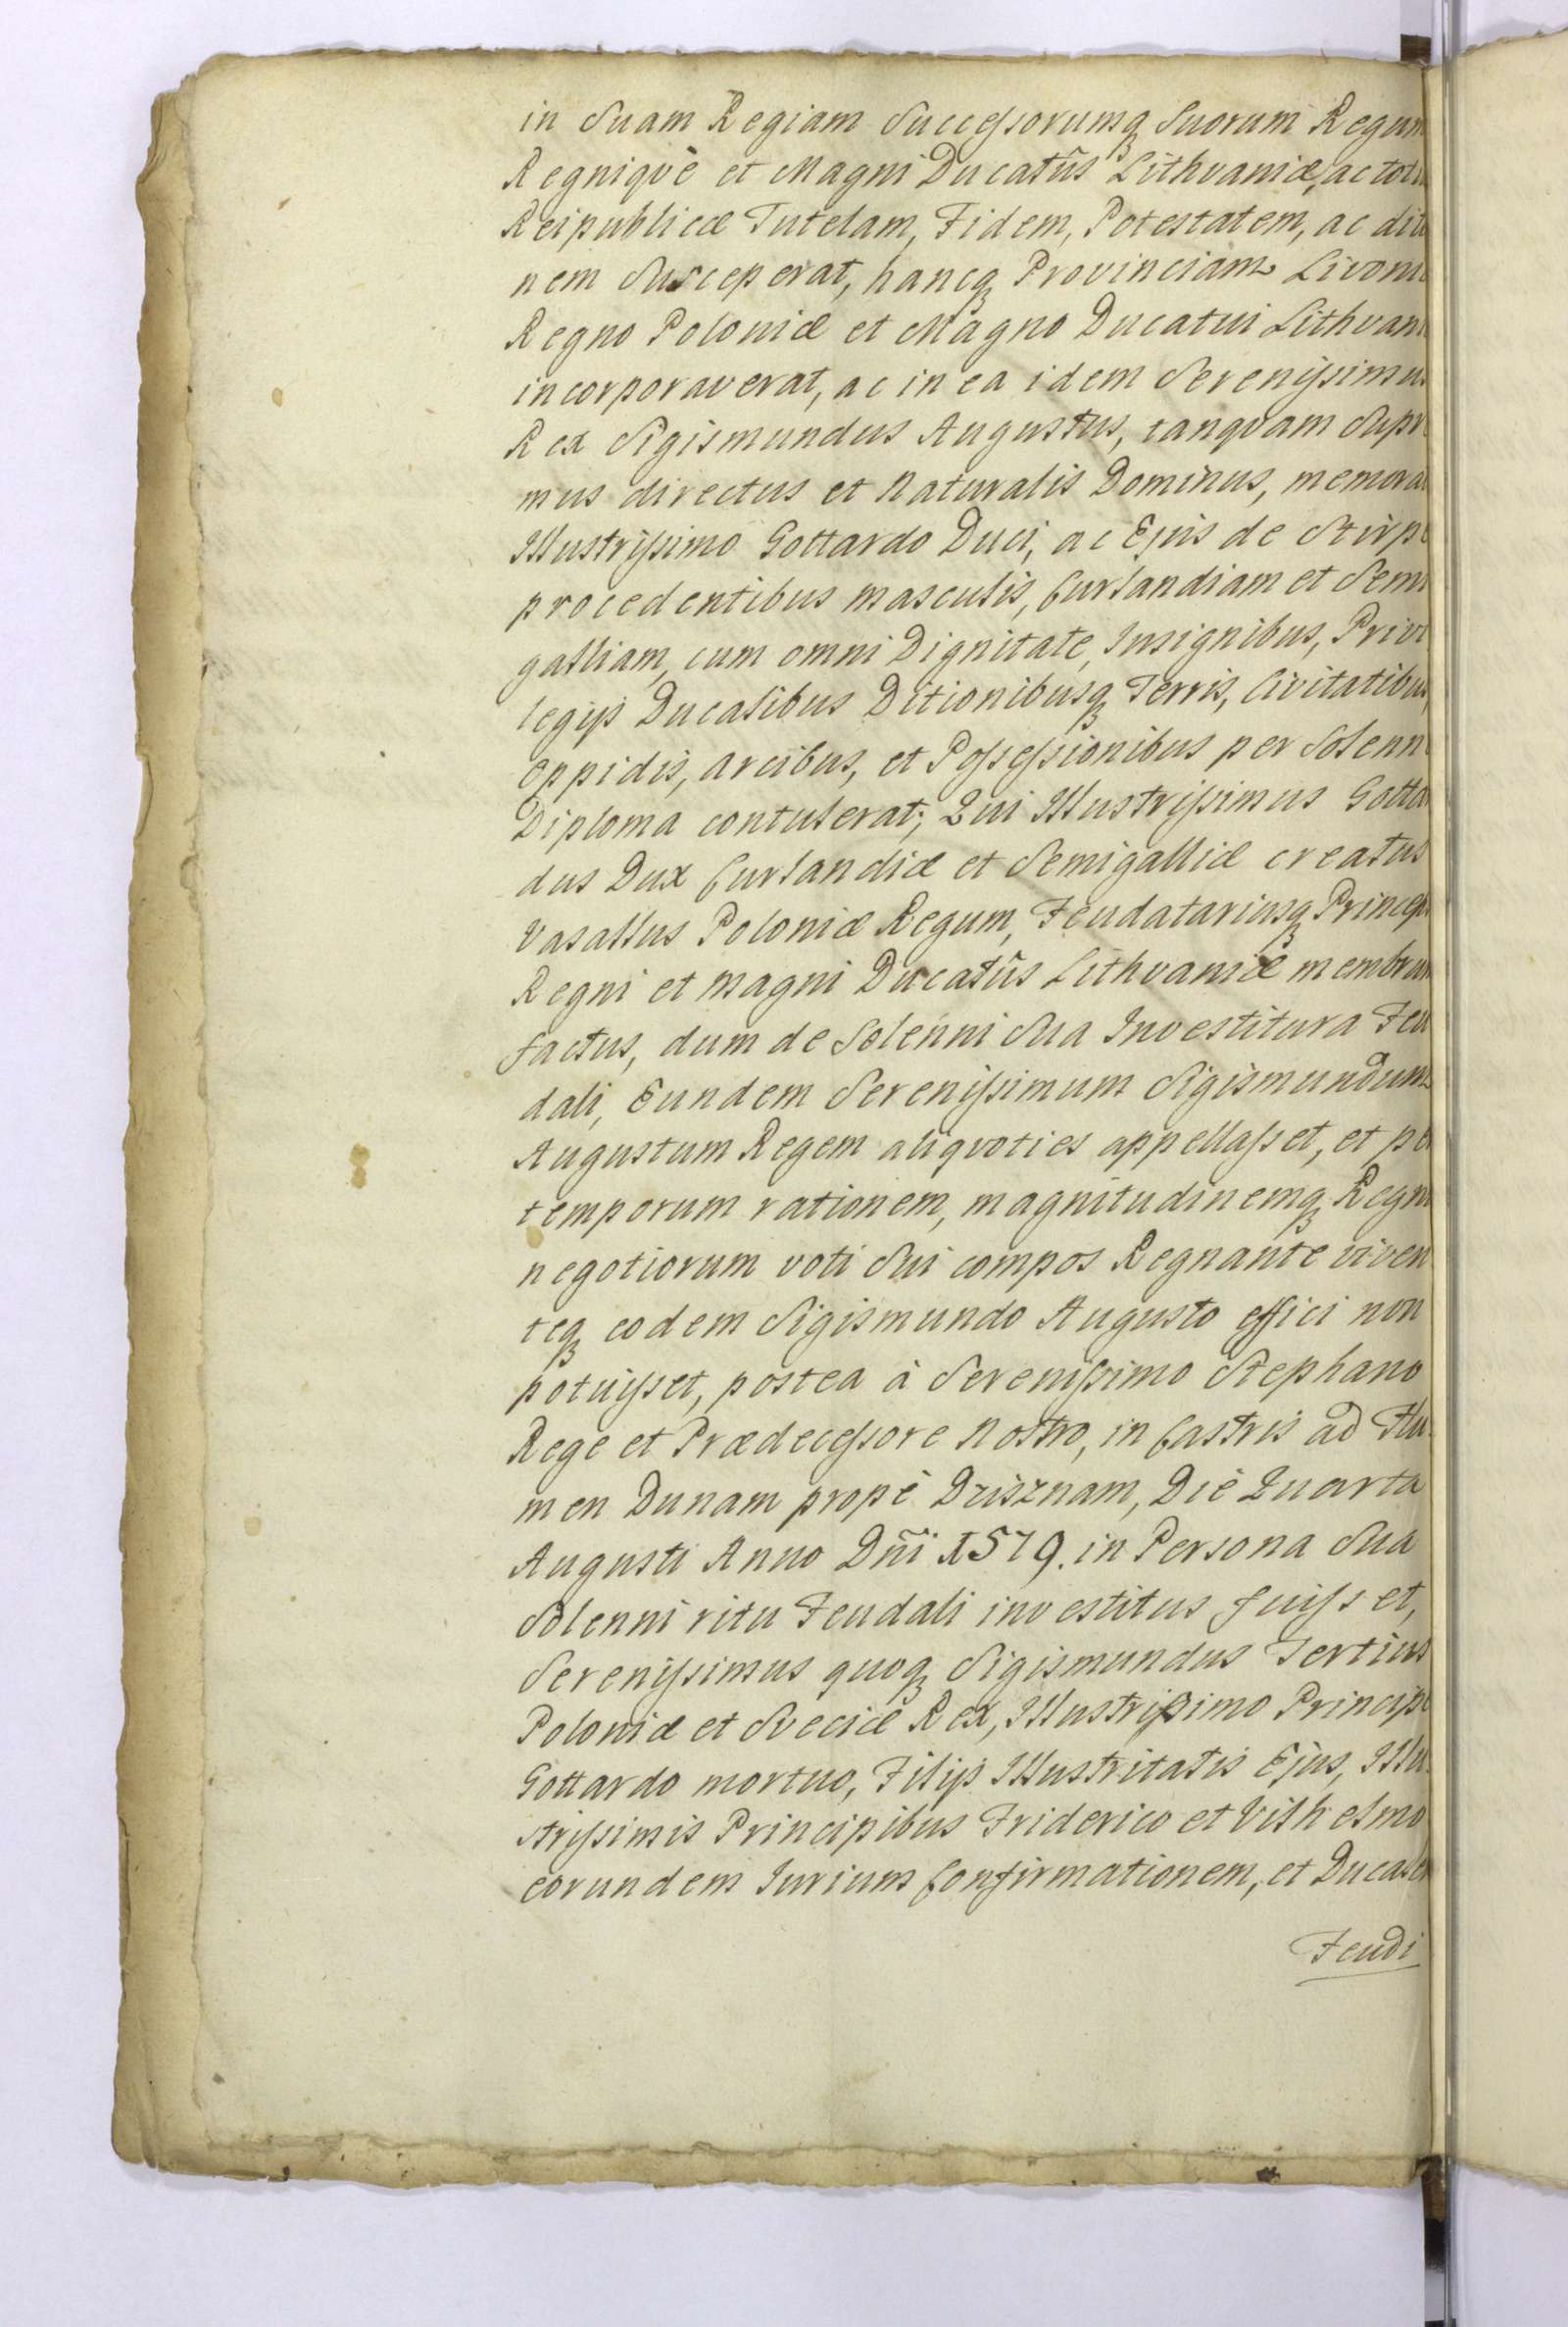 in Suam Regiam Successorumq Suorum Regum
Regniqvè et Magni Ducatûs Lithvaniæ, ac toti
Reipublicæ Tutelam, Fidem, Potestatem, ac diti
nem Susceperat, hancq Provinciam Livoni
Regno Poloniæ et Magno Ducatui Lithvani
incorporaverat, ac in ea idem Serenissimus
Rex Sigismundus Augustus, tanqvam Supr
mus directus et Naturalis Dominus, memorat
Illustrissimo Gottardo Duci, ac Ejus de Stirpe
procedentibus masculis, Curlandiam et Semi
galliam, cum omni Dignitate, Insignibus, Privi
legijs Ducalibus Ditionibusq Terris, Civitatibus,
Oppidis, Arcibus, et Possessionibus per Solenne
Diploma contulerat; Qui Illustrissimus Gottar
dus Dux Curlandiæ et Semigalliæ creatus
Vasallus Poloniæ Regum, Feudatariusq Princeps
Regni et Magni Ducatûs Lithvaniæ membrum
factus, dum de Solenni Sua Investitura Feu
dali, Eundem Serenissimum Sigismundum
Augustum Regem aliqvoties appellasset, et per
temporum rationem, magnitudinemq Regni
negotiorum voti Sui compos Regnante viven
teq eodem Sigismundo Augusto effici non
potuisset, postea à Serenissimo Stephano
Rege et Prædecessore Nostro, in Castris ad Flu
men Dunam propè Dzisznam, Diè Quarta
Augusti Anno Dñi 1579. in Persona Sua
Solenni ritu Feudali investitus fuisset,
Serenissimus quoq Sigismundus Tertius
Poloniæ et Sveciæ Rex, Illustrissimo Principe
Gottardo mortuo, Filijs Illustritatis Ejus, Illu
strissimis Principibus Friderico et Vilhelmo
eorundem Iurium Confirmationem, et Ducalem
Feudi